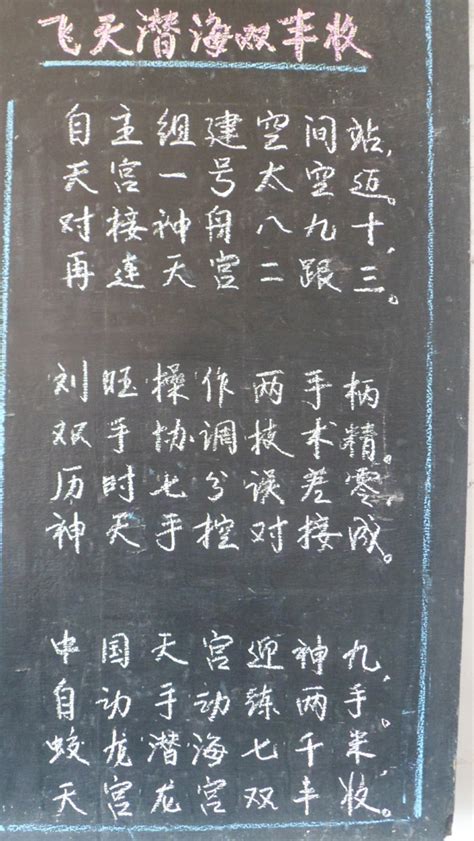 飞天潜海双丰收
自主组建空间站,
天宫一号太空迈。
对接神舟八九十,
再连天宫二跟三。
刘旺操作两手柄
双手协调技术精。
历时七分误差零,
神天手控对接成。
中国天宫迎神九,
自动手动练两手。
蛟龙潜海七千米
天宫龙宫双丰收。